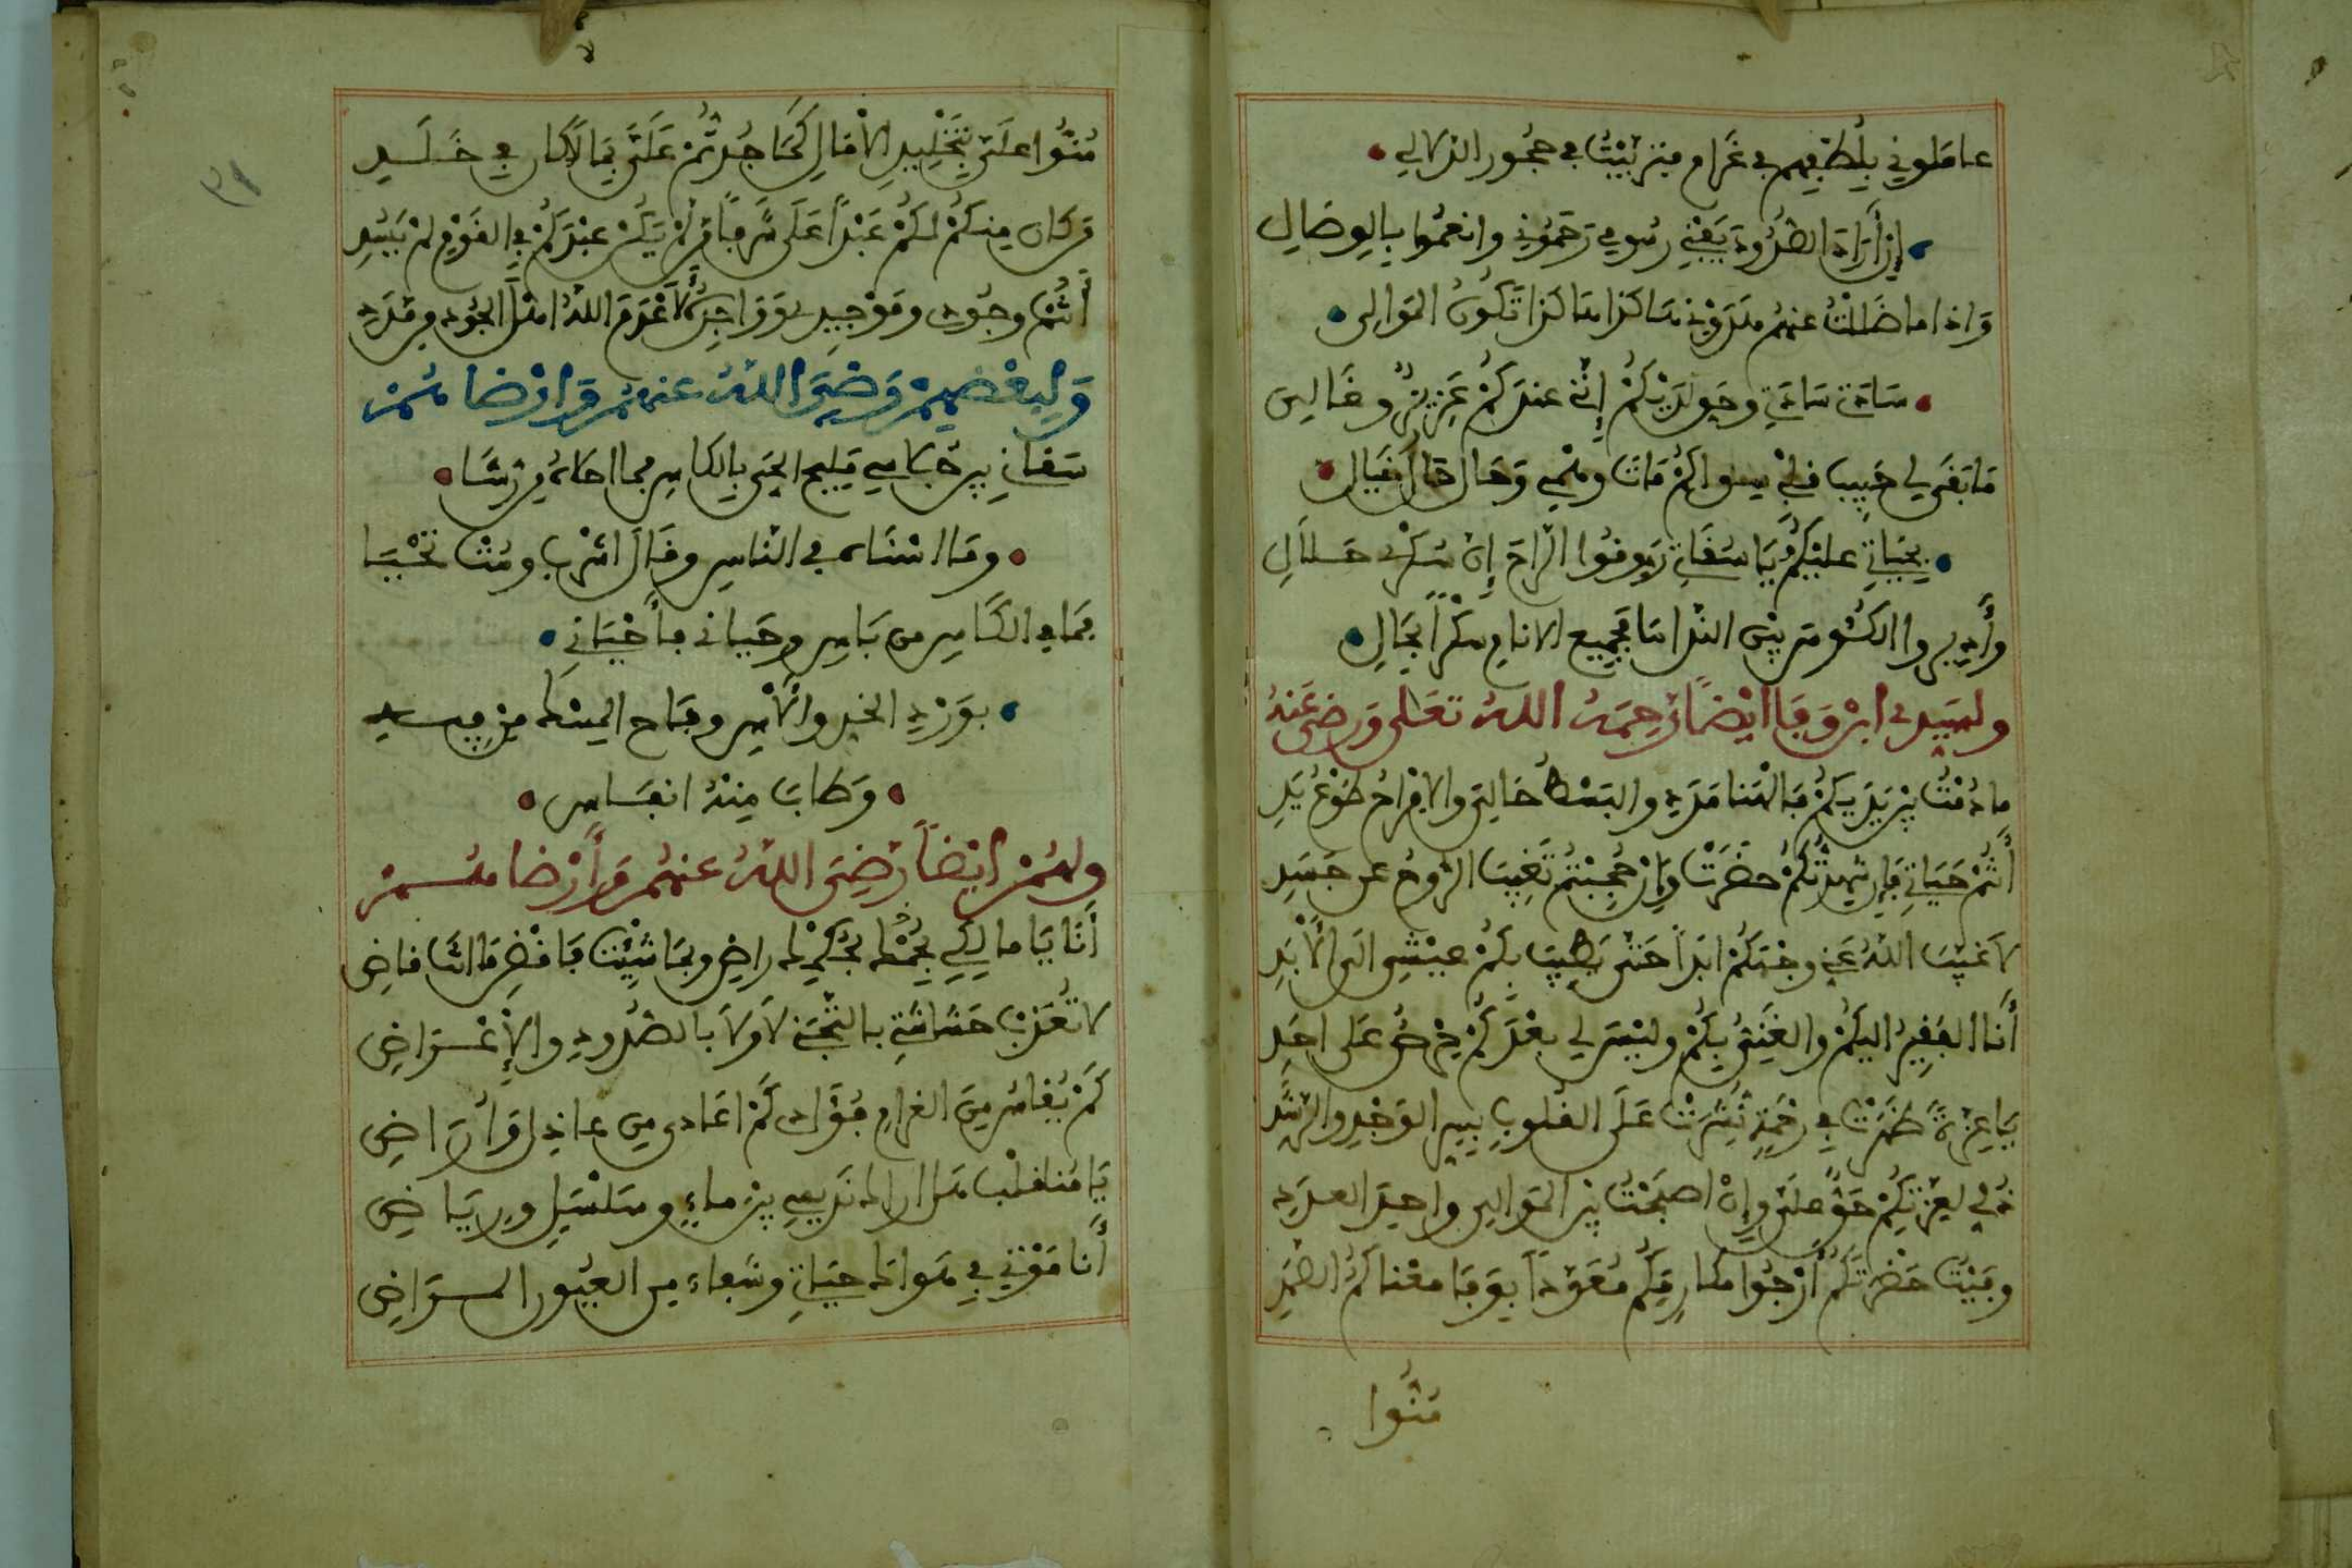 عاملوني بلطفهم في غرام منذ ربيت في حجور الدلالي
إن أرادة الصدود يفني رسومي رحموني وانعموا بالوصال
واذا ما ضللت عنهم هدوني هاكذا هاكذا تكون الموالى
سادتي سادتي وحق لديكم إني عندكم عزيز وغالي
ما بقى لي حبيب قلبي سواكم مات وهمي وحال حال انفيال
بحياتي عليكم يا سقاتي روقوا الراح إن سكري حلال
وأديروا الكئوس بين الندامى فجميع الانام سكرا بحال
ولسيدي ابن وفا ايضا رحمه الله تعلى ورضي عنه
ما دمت بين يديكم فالهنا مددي والبسط حالي والافراح طوع يدي
أنتم حياتي فإن شهدتكم حضرت وإن حجبتم تغيب الروح عن جسدي
لا غيب الله عني وجهكم ابدا حتى يطيب بكم عيشي الى الأبد
أنا الفقير اليكم والغني بكم وليس لي بعدكم حرص على احد
يا عزة ظهرت في رحمة نشرت على القلوب بسير الوجد والرشد
ذلي لعزتكم حق علي وإن اصبحت بين الموالي واحد العدد
وفيت حضرتكم أرجوا مكارمكم معودا بوفا معناكم الصمد
منوا
منوا علي بتخليد الاقبال كما جدتم علي بما لا كان في خلدي
من كان منكم لكم عبدا على شرف من لم يكن عبدكم في القوم لم يسد
أنتم وجودي وموجدي وواجدكم لا عدم الله اهل الجود من مدد
ولبعضهم رضي الله عنهم وارضاهم
سقاني بين جلاسي مليح الحي بالكاس فما احلاه من شا
وما انشاه في الناس وقال اشرب ومت تحيا
بما في الكاس من باس وحياني فأحياني
بورد الخد والآس وفاح المسك من فيه
وطاب منه انفاس
ولهم ايضا رضي الله عنهم وأرضاهم
أنا يا مالكي بحكمك راض وبما شئت فاقض ما انت قاض
لا تعذب حشاشتي بالتجني لا ولا بالصدود والإعراض
كم يقاس من الغرام فؤادي كم اعادي من عاذل وأراض
يا منا قلب هل اراك نديمي بين ماء وسلسبيل ورياض
أنا موتي في هواك حياتي وشفاء من العيون المراض